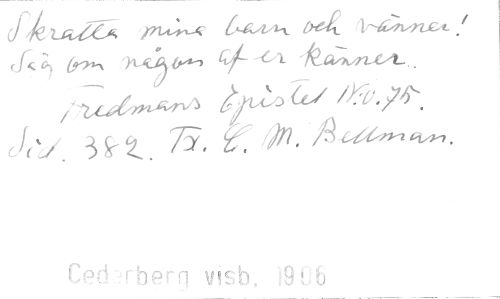 Skratta mina barn och vänner!
Säg om någon af er känner.
Fredmans Epistel N:o. 75.
Sid. 382. Tx. C. M. Bellman.
Cederberg visb. 1906